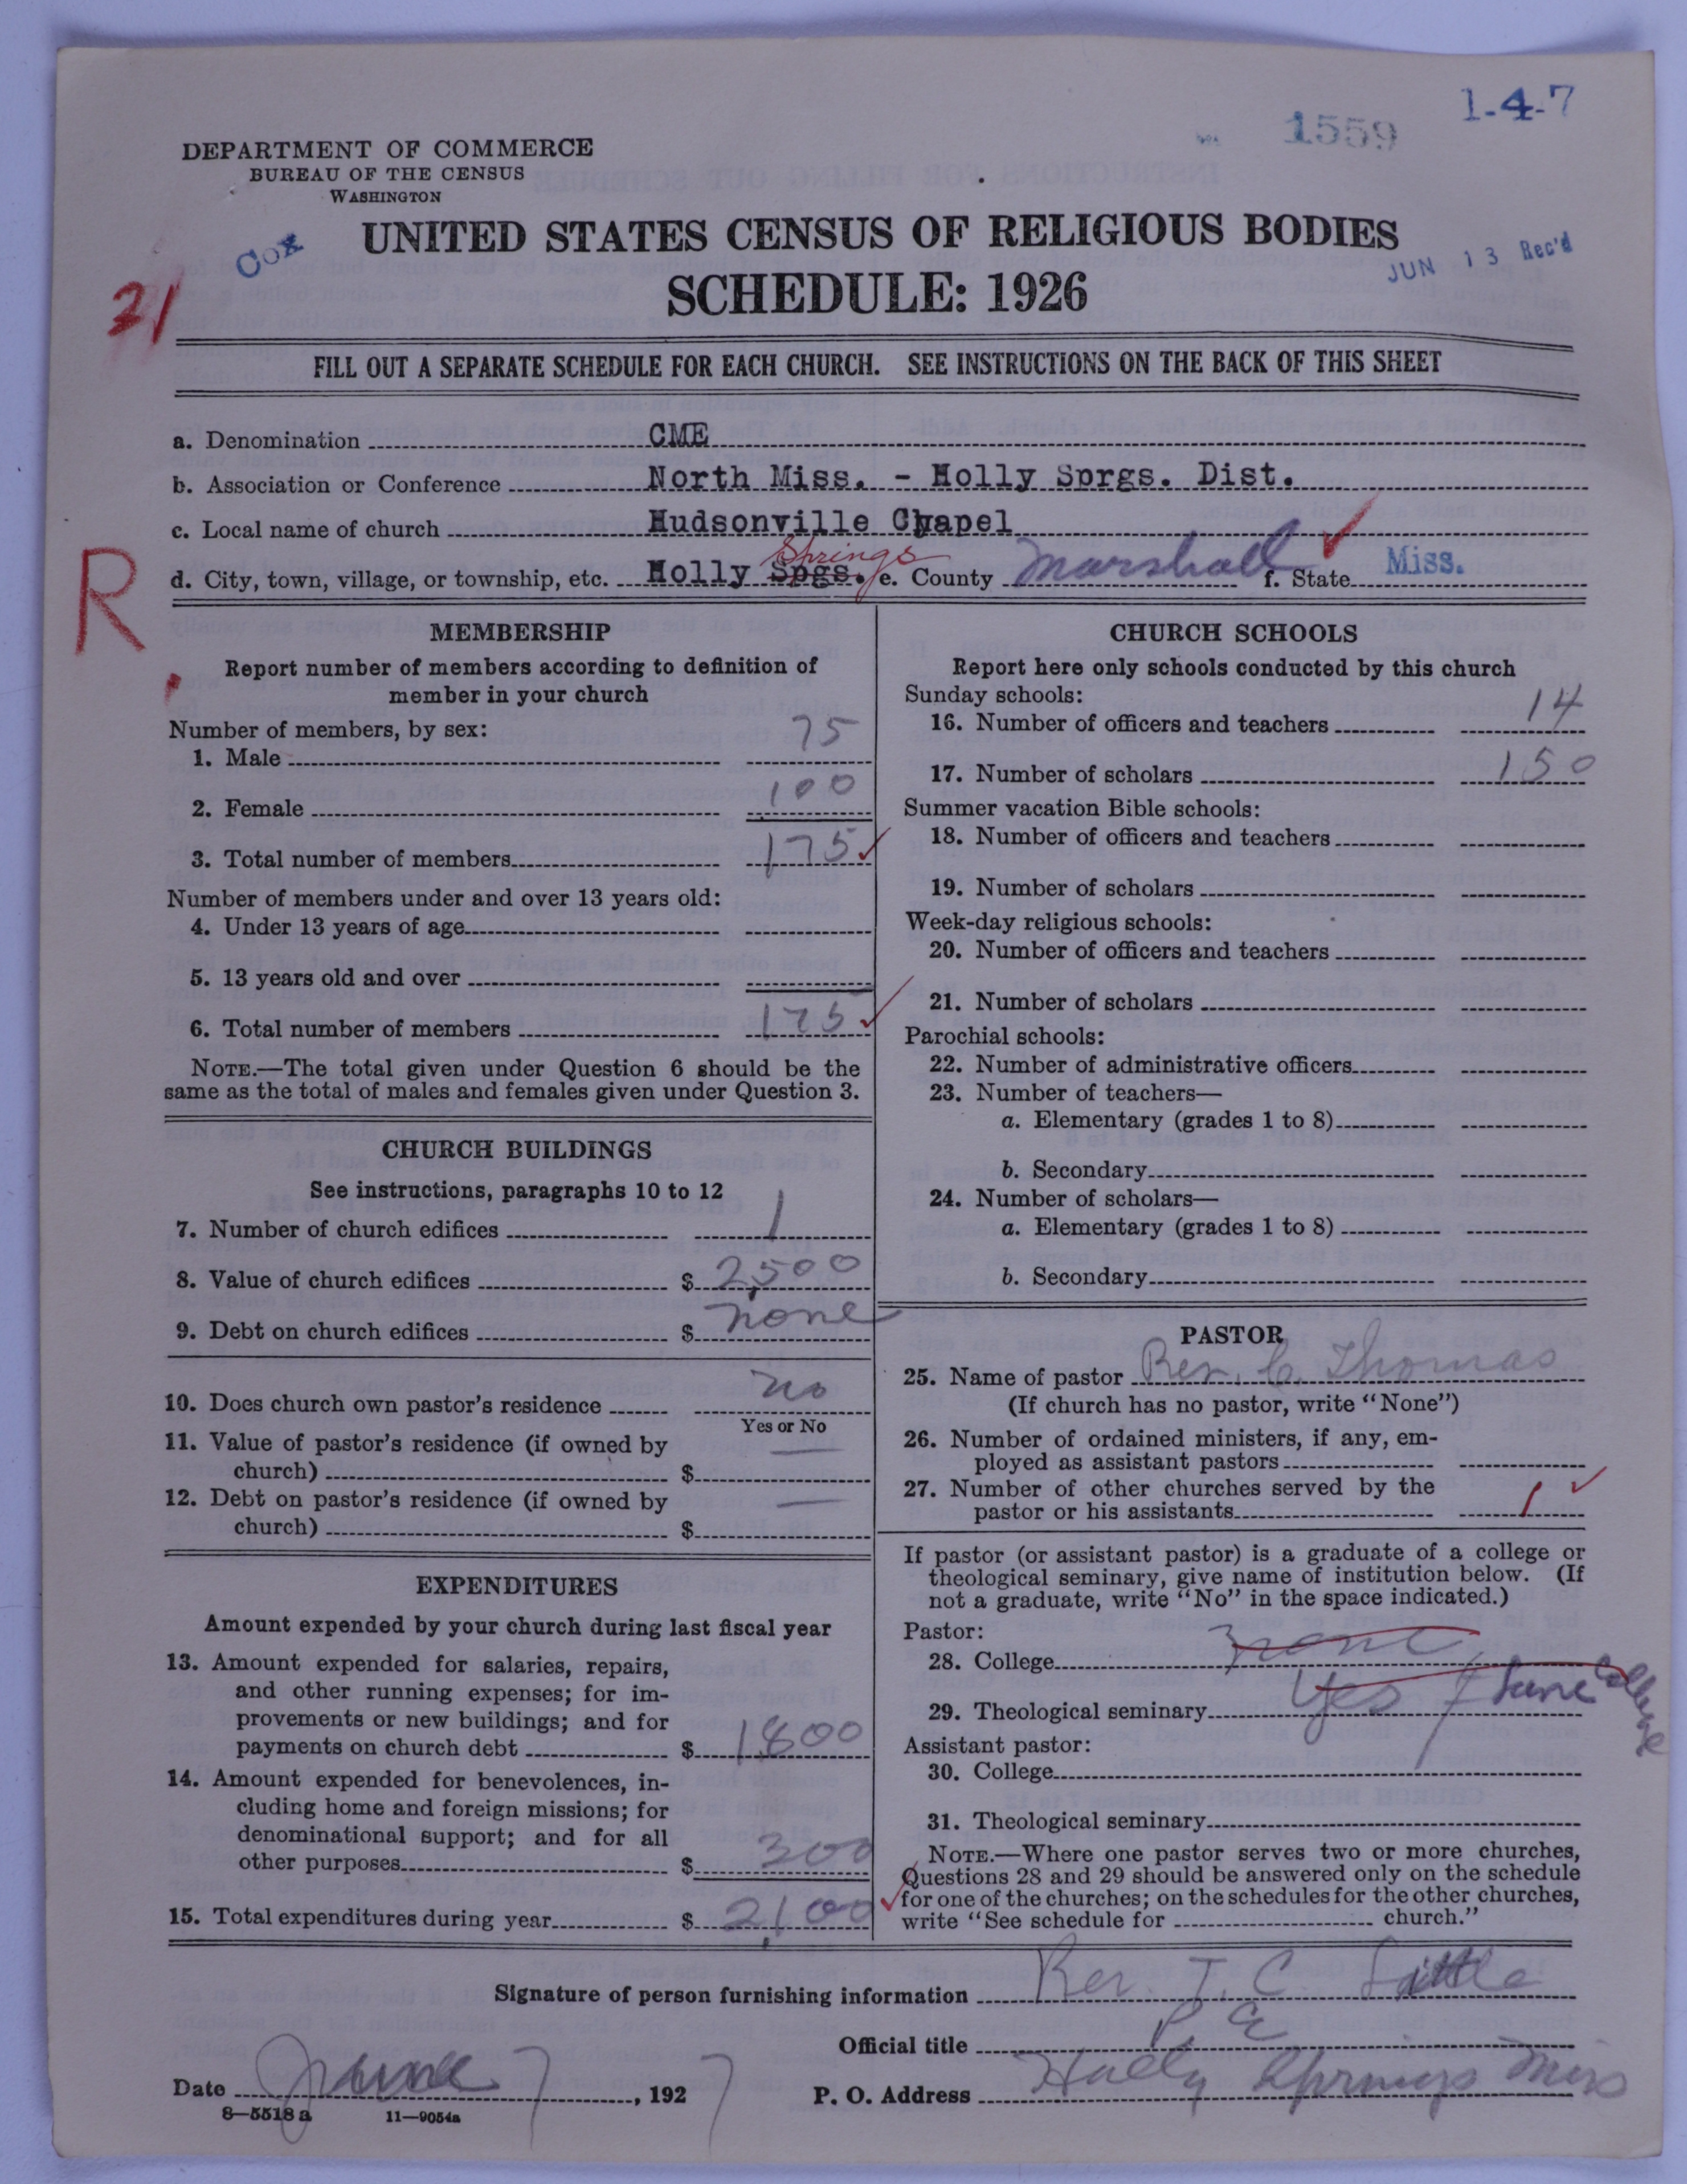 1-4-7
1559
DEPARTMENT OF COMMERCE
BUREAU OF THE CENSUS
WASHINGTON
Cox
UNITED STATES CENSUS OF RELIGIOUS BODIES
JUN 13 Rec'd
SCHEDULE: 1926
FILL OUT A SEPARATE SCHEDULE FOR EACH CHURCH. SEE INSTRUCTIONS ON THE BACK OF THIS SHEET
a. Denomination CME
b. Association or Conference North Miss. - Holly Sprgs. Dist.
c. Local name of church Hudsonville Chapel
Springs
d. City, town, village, or township, etc. Holly Spgs. e. County Marshall f. State Miss.
R
MEMBERSHIP
Report number of members according to definition of
member in your church
Number of members, by sex:
1. Male 75
2. Female 100
3. Total number of members 175
Number of members under and over 13 years old:
4. Under 13 years of age
5. 13 years old and over
6. Total number of members 175
NOTE.—The total given under Question 6 should be the
same as the total of males and females given under Question 3.
CHURCH BUILDINGS
See instructions, paragraphs 10 to 12
7. Number of church edifices 1
8. Value of church edifices $ 2,500
9. Debt on church edifices $ none
10. Does church own pastor's residence no
Yes or No
11. Value of pastor's residence (if owned by
church) $ —
12. Debt on pastor's residence (if owned by
church) $ —
EXPENDITURES
Amount expended by your church during last fiscal year
13. Amount expended for salaries, repairs,
and other running expenses; for im-
provements or new buildings; and for
payments on church debt $ 1800
14. Amount expended for benevolences, in-
cluding home and foreign missions; for
denominational support; and for all
other purposes $ 300
15. Total expenditures during year $ 2,100
CHURCH SCHOOLS
Report here only schools conducted by this church
Sunday schools:
16. Number of officers and teachers 14
17. Number of scholars 150
Summer vacation Bible schools:
18. Number of officers and teachers
19. Number of scholars
Week-day religious schools:
20. Number of officers and teachers
21. Number of scholars
Parochial schools:
22. Number of administrative officers
23. Number of teachers—
a. Elementary (grades 1 to 8)
b. Secondary
24. Number of scholars—
a. Elementary (grades 1 to 8)
b. Secondary
PASTOR
25. Name of pastor Rev. C. Thomas
(If church has no pastor, write "None")
26. Number of ordained ministers, if any, em-
ployed as assistant pastors
27. Number of other churches served by the
pastor or his assistants 1
If pastor (or assistant pastor) is a graduate of a college or
theological seminary, give name of institution below. (If
not a graduate, write "No" in the space indicated.)
Pastor:
28. College none
29. Theological seminary Yes / Lane College
Assistant pastor:
30. College
31. Theological seminary
NOTE.—Where one pastor serves two or more churches,
Questions 28 and 29 should be answered only on the schedule
for one of the churches; on the schedules for the other churches,
write "See schedule for church."
Signature of person furnishing information Rev. T. C. Little
Official title P E
Date June 7, 1927 P. O. Address Holly Springs Miss
8—5518 a 11—9054a